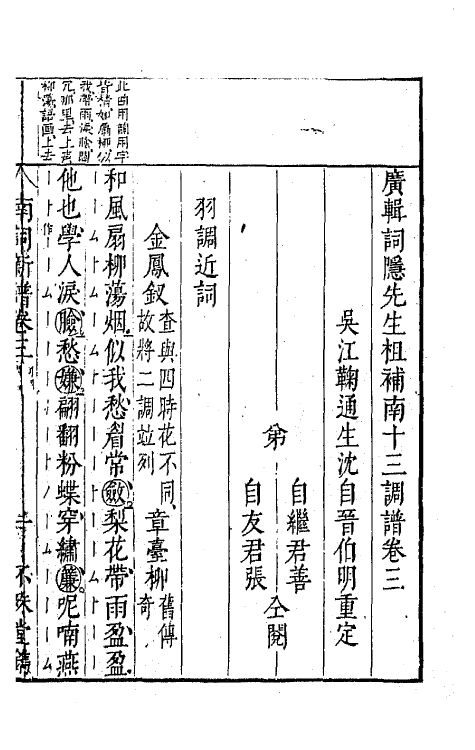 廣輯詞隱先生祖補南十三調譜卷三
吳江鞠通生沈自晉伯明重定
自繼君善
第
仝閱
自友君張
羽調近詞
金鳳釵查與四時花不同故將二調竝列
章臺柳舊傳奇
和風扇柳蕩烟似我愁眉常斂梨花帶雨盈盈
他也學人淚臉愁嫌翩翻粉蝶穿繡簾呢喃燕
此曲用韻用字
皆精如扇柳似
我帶雨淚臉翩
柳
南詞新譜卷三
不殊堂